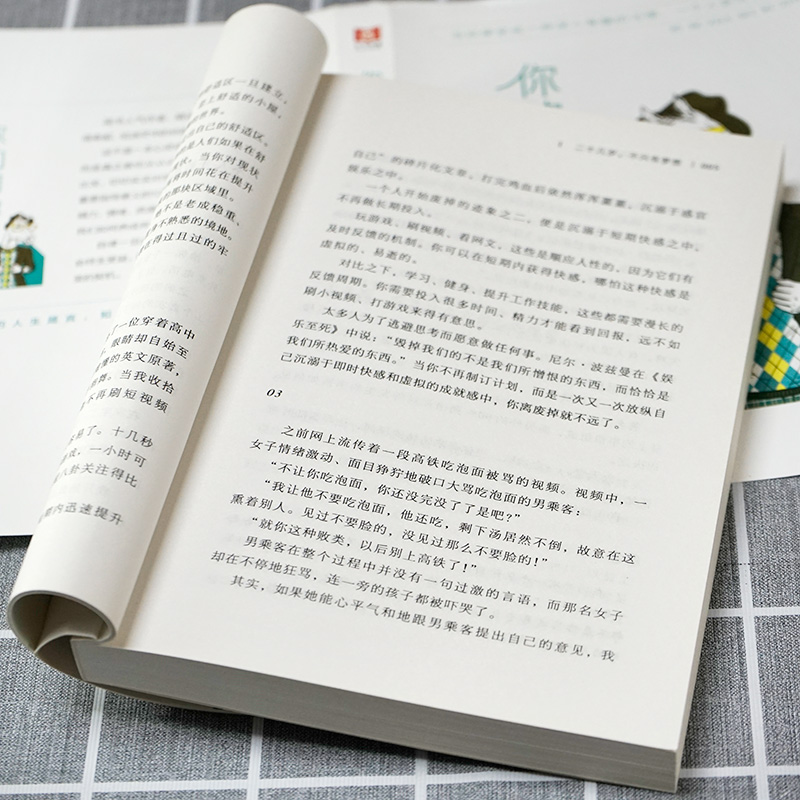 适区一旦建立，
上舒适的小屋，
世界。
自己的舒适区。
是人们如果在舒
状，当你对现状
将时间花在提升
的那块区域里。
不是老成稳重、
不熟悉的境地。
得过且过的牢
了一位穿着高中
眼睛却自始至
的英文原著，
舞。当我收拾
不再刷短视频
易了。十几秒
戏，一小时可
八卦关注得比
内迅速提升
自己”的碎片化文章，打完鸡血后依然浑浑噩噩，沉溺于感官
娱乐之中。
一个人开始废掉的迹象之二，便是沉溺于短期快感之中，
不再做长期投入。
玩游戏、刷视频、看网文，这些是顺应人性的，因为它们有
及时反馈的机制。你可以在短期内获得快感，哪怕这种快感是
虚拟的、易逝的。
对比之下，学习、健身、提升工作技能，这些都需要漫长的
反馈周期。你需要投入很多时间、精力才能看到回报，远不如
刷小视频、打游戏来得有意思。
太多人为了逃避思考而愿意做任何事。尼尔·波兹曼在《娱
乐至死》中说：“毁掉我们的不是我们所憎恨的东西，而恰恰是
我们所热爱的东西。”当你不再制订计划，而是一次又一次放纵自
己沉溺于即时快感和虚拟的成就感中，你离废掉就不远了。
03
之前网上流传着一段高铁吃泡面被骂的视频。视频中，一
女子情绪激动、面目狰狞地破口大骂吃泡面的男乘客：
“不让你吃泡面，你还没完没了了是吧？”
“我让他不要吃泡面，他还吃，剩下汤居然不倒，故意在这
熏着别人。见过不要脸的，没见过那么不要脸的！”
“就你这种败类，以后别上高铁了！”
男乘客在整个过程中并没有一句过激的言语，而那名女子
却在不停地狂骂，连一旁的孩子都被吓哭了。
其实，如果她能心平气和地跟男乘客提出自己的意见，我
你